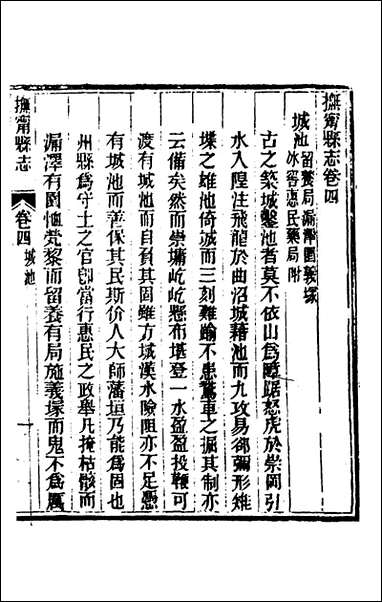 撫甯縣志卷四
城池 留養局漏澤園義塚
冰窖惠民藥局附
古之築城鑿池者莫不依山爲 踞怒虎於崇岡引
水入隍注飛龍於曲沼城藉池而九攻易郤彌形雉
堞之雄池倚城而三刻難踰不患 車之掘其制亦
云備矣然而崇墉屹屹懸布堪登一水盈盈投鞭可
渡有城池而自負其固雖方城漢水險阻亦不足憑
有城池而善保其民斯价人大師藩垣乃能爲固也
州縣爲守土之官卽當行惠民之政舉凡掩枯骸而
漏澤有園恤煢黎而留養有局施義塚而鬼不爲厲
撫甯縣志
卷四 城池